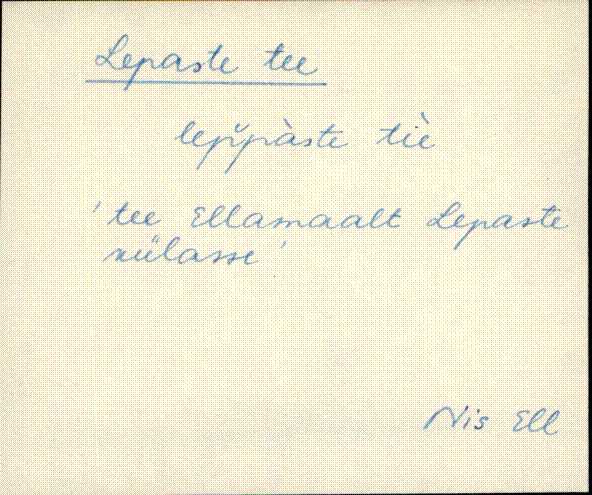 Lepaste tee
lep̆pàste tìe
'tee Ellamaalt Lepaste
külasse'
Nis Ell